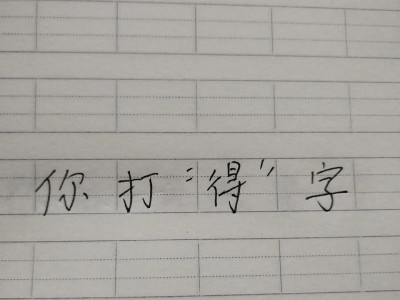 你打“得”字